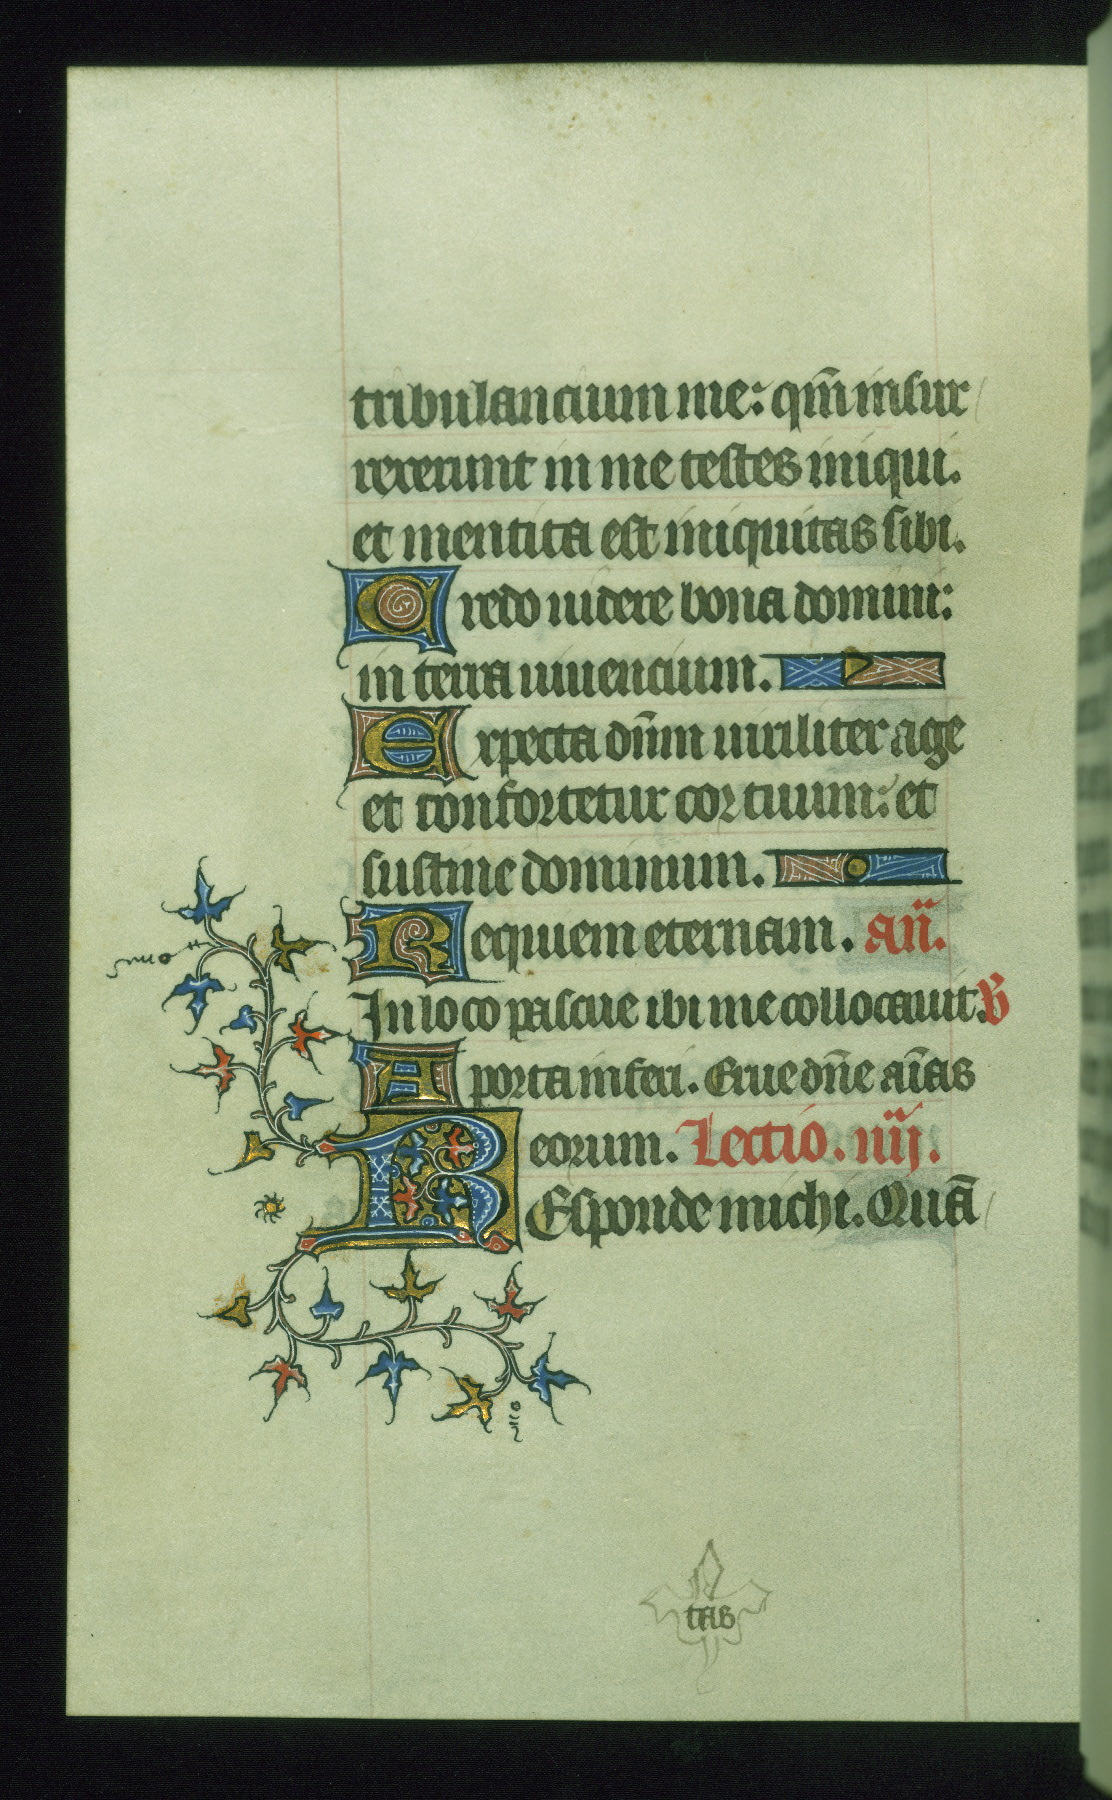 tribulancium me: qm̄ insur
rexerunt in me testes iniqui.
et mentita est iniquitas sibi.
Credo uidere bona domini:
in terra uiuencium.
Expecta dn̄m uiriliter age
et confortetur cor tuum: et
sustine dominum.
Requiem eternam. an̄.
In loco pascue ibi me collocauit. V̷
A porta inferi. Erue dn̄e aīas
eorum. Lectio. iiij.
REsponde michi. Quā
tas